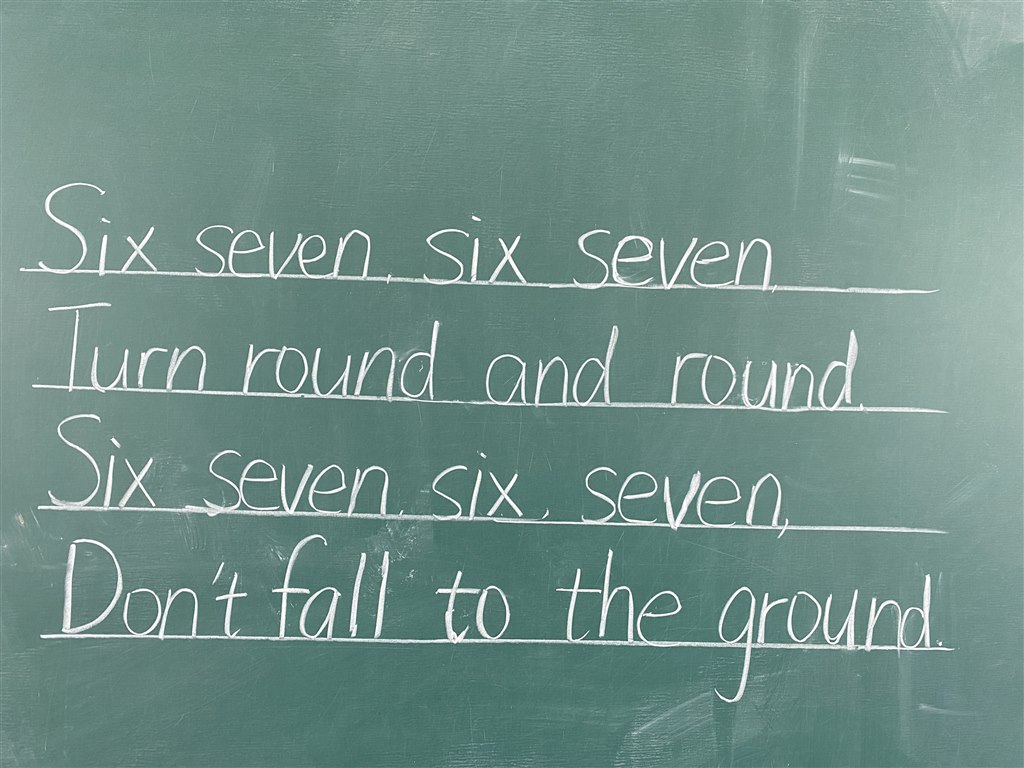 Six seven, six seven,
Turn round and round.
Six seven, six, seven,
Don't fall to the ground.